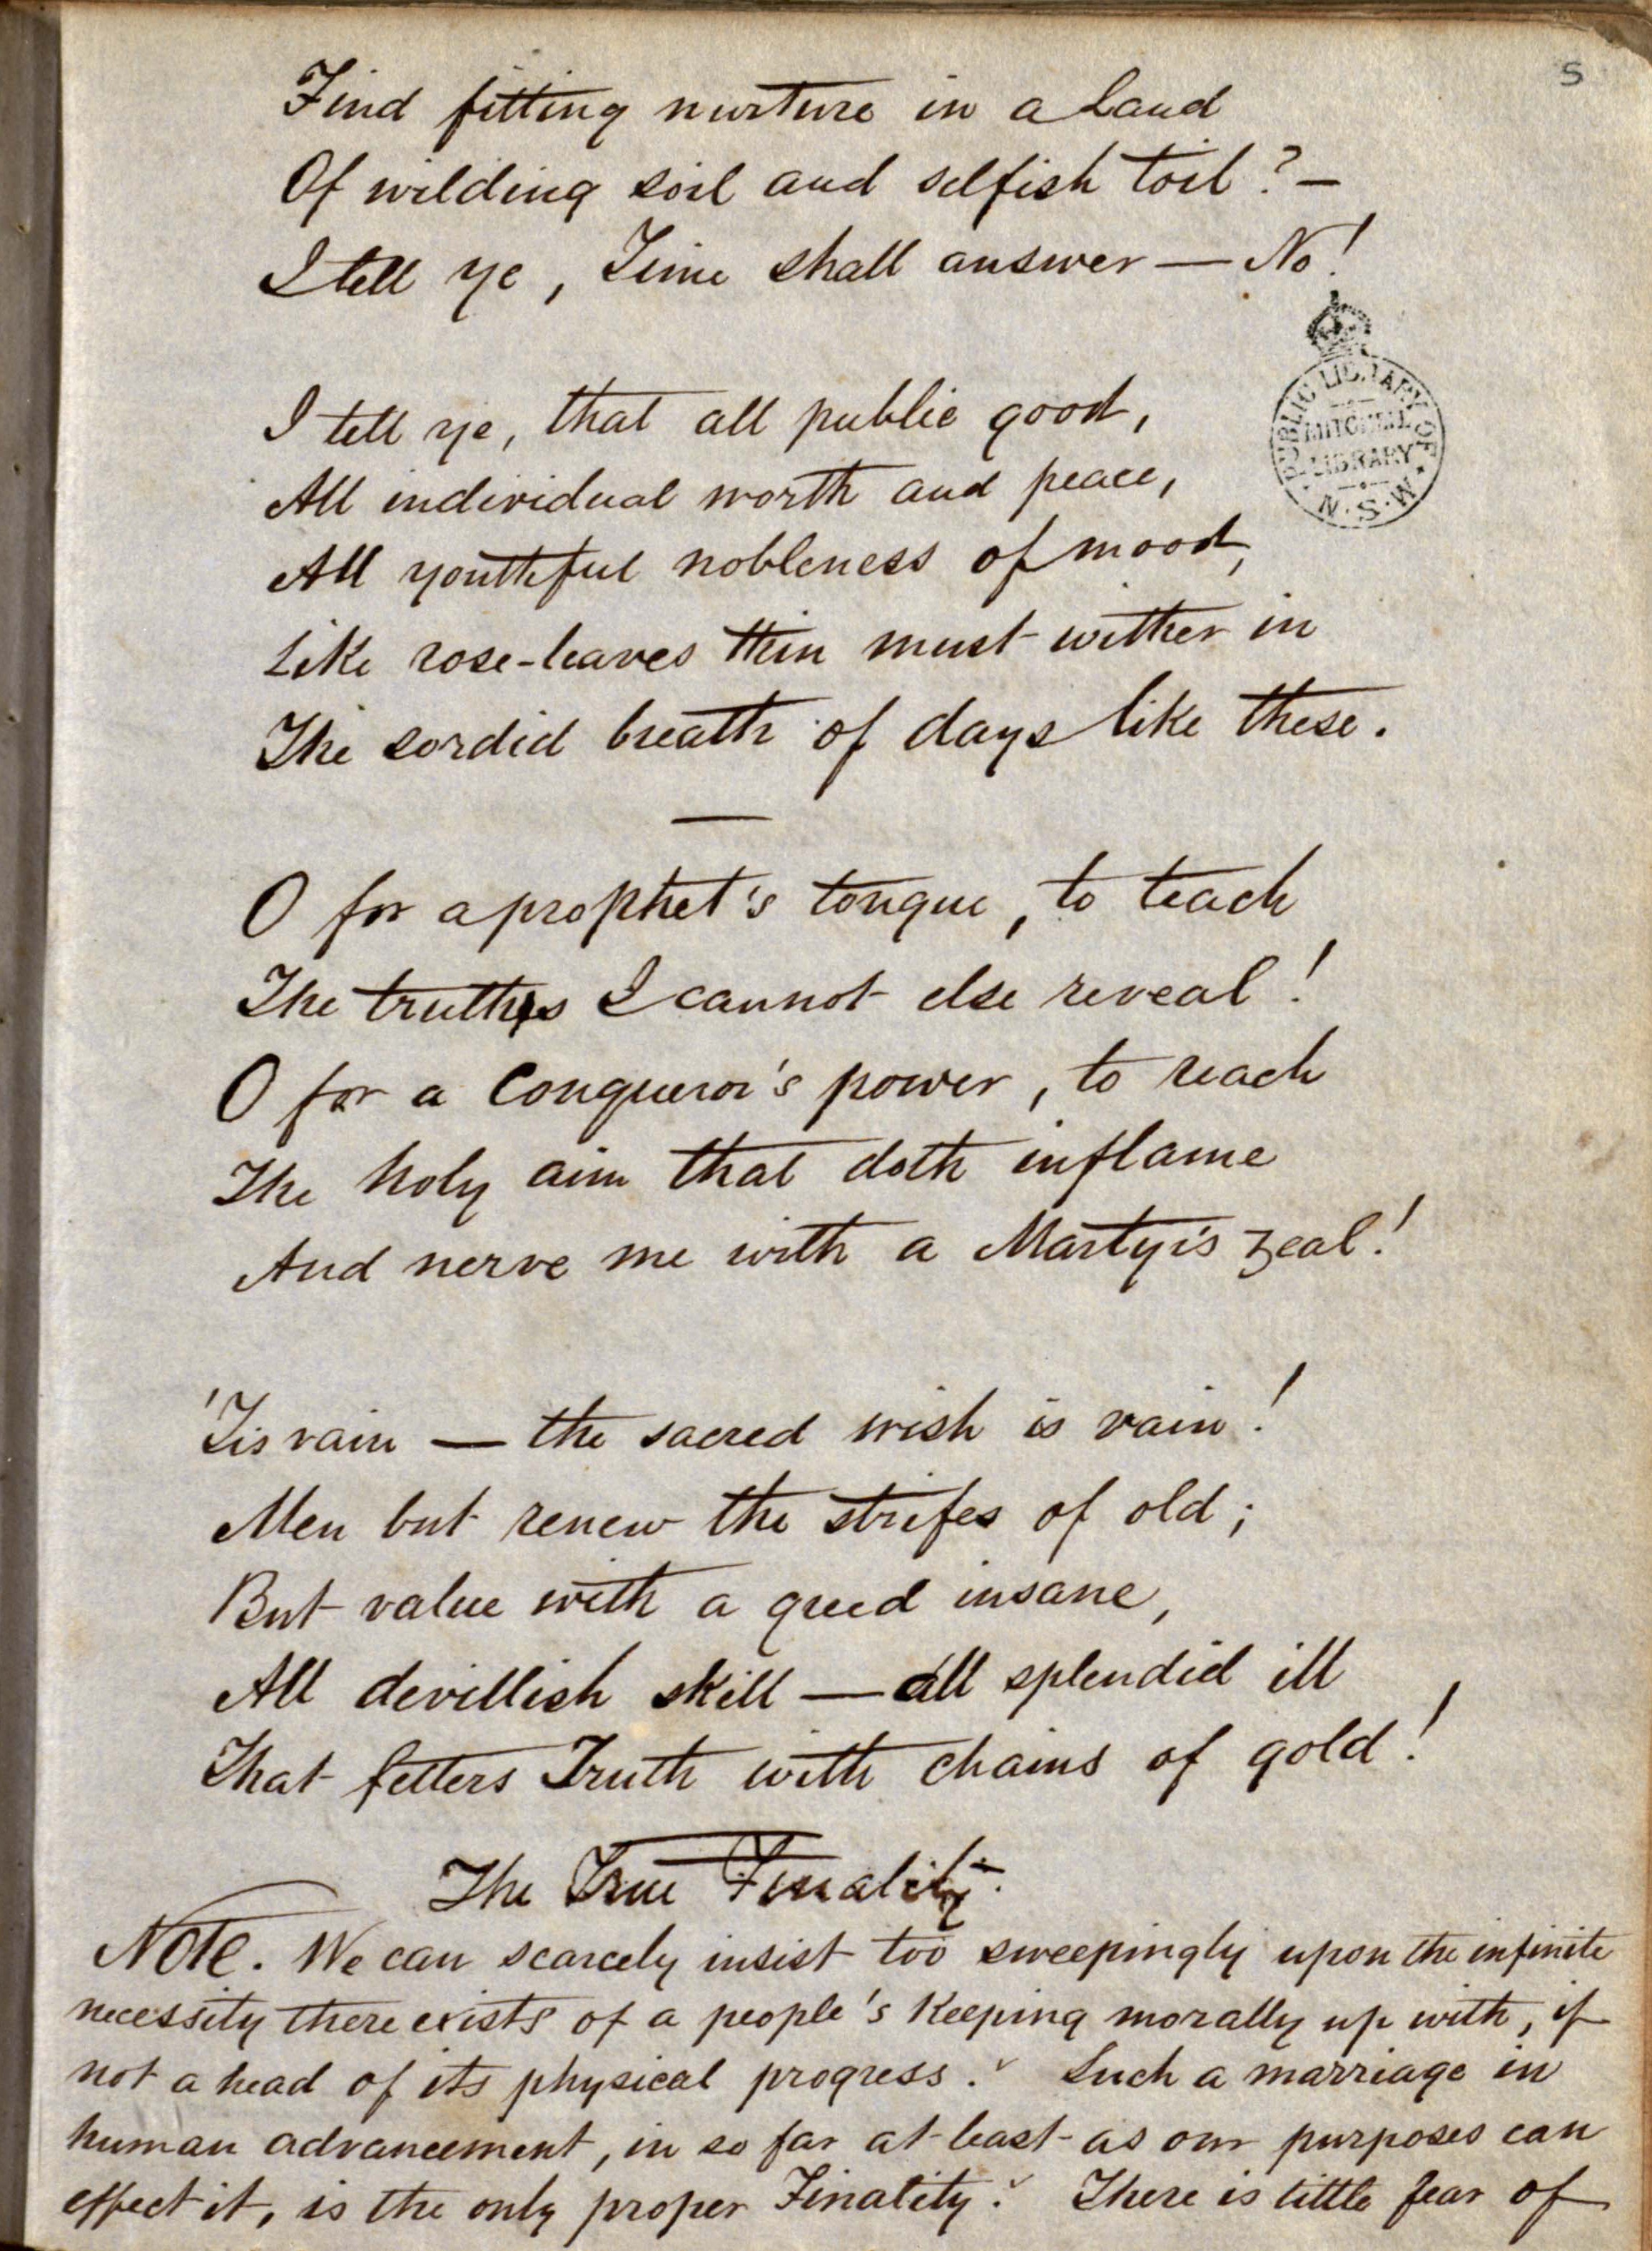 5
Find fitting nurture in a Land
Of wilding soil and selfish toil? —
I tell ye, Time shall answer — No!
PUBLIC LIBRARY OF
MITCHELL
LIBRARY
N.S.W.
I tell ye, that all public good,
All individual worth and peace,
All youthful nobleness of mood,
Like rose-leaves thin must wither in
The sordid breath of days like these.
O for a prophet's tongue, to teach
The truths I cannot else reveal!
O for a Conqueror's power, to reach
The holy aim that doth inflame
And nerve me with a Martyr's zeal!
'Tis vain — the sacred wish is vain!
Men but renew the strifes of old;
But value with a greed insane,
All devillish skill — all splendid ill
That fetters Truth with chains of gold!
The True Finality.
Note. We can scarcely insist too sweepingly upon the infinite
necessity there exists of a people's keeping morally up with, if
not a head of its physical progress. Such a marriage in
human advancement, in so far at least as our purposes can
effect it, is the only proper Finality. There is little fear of